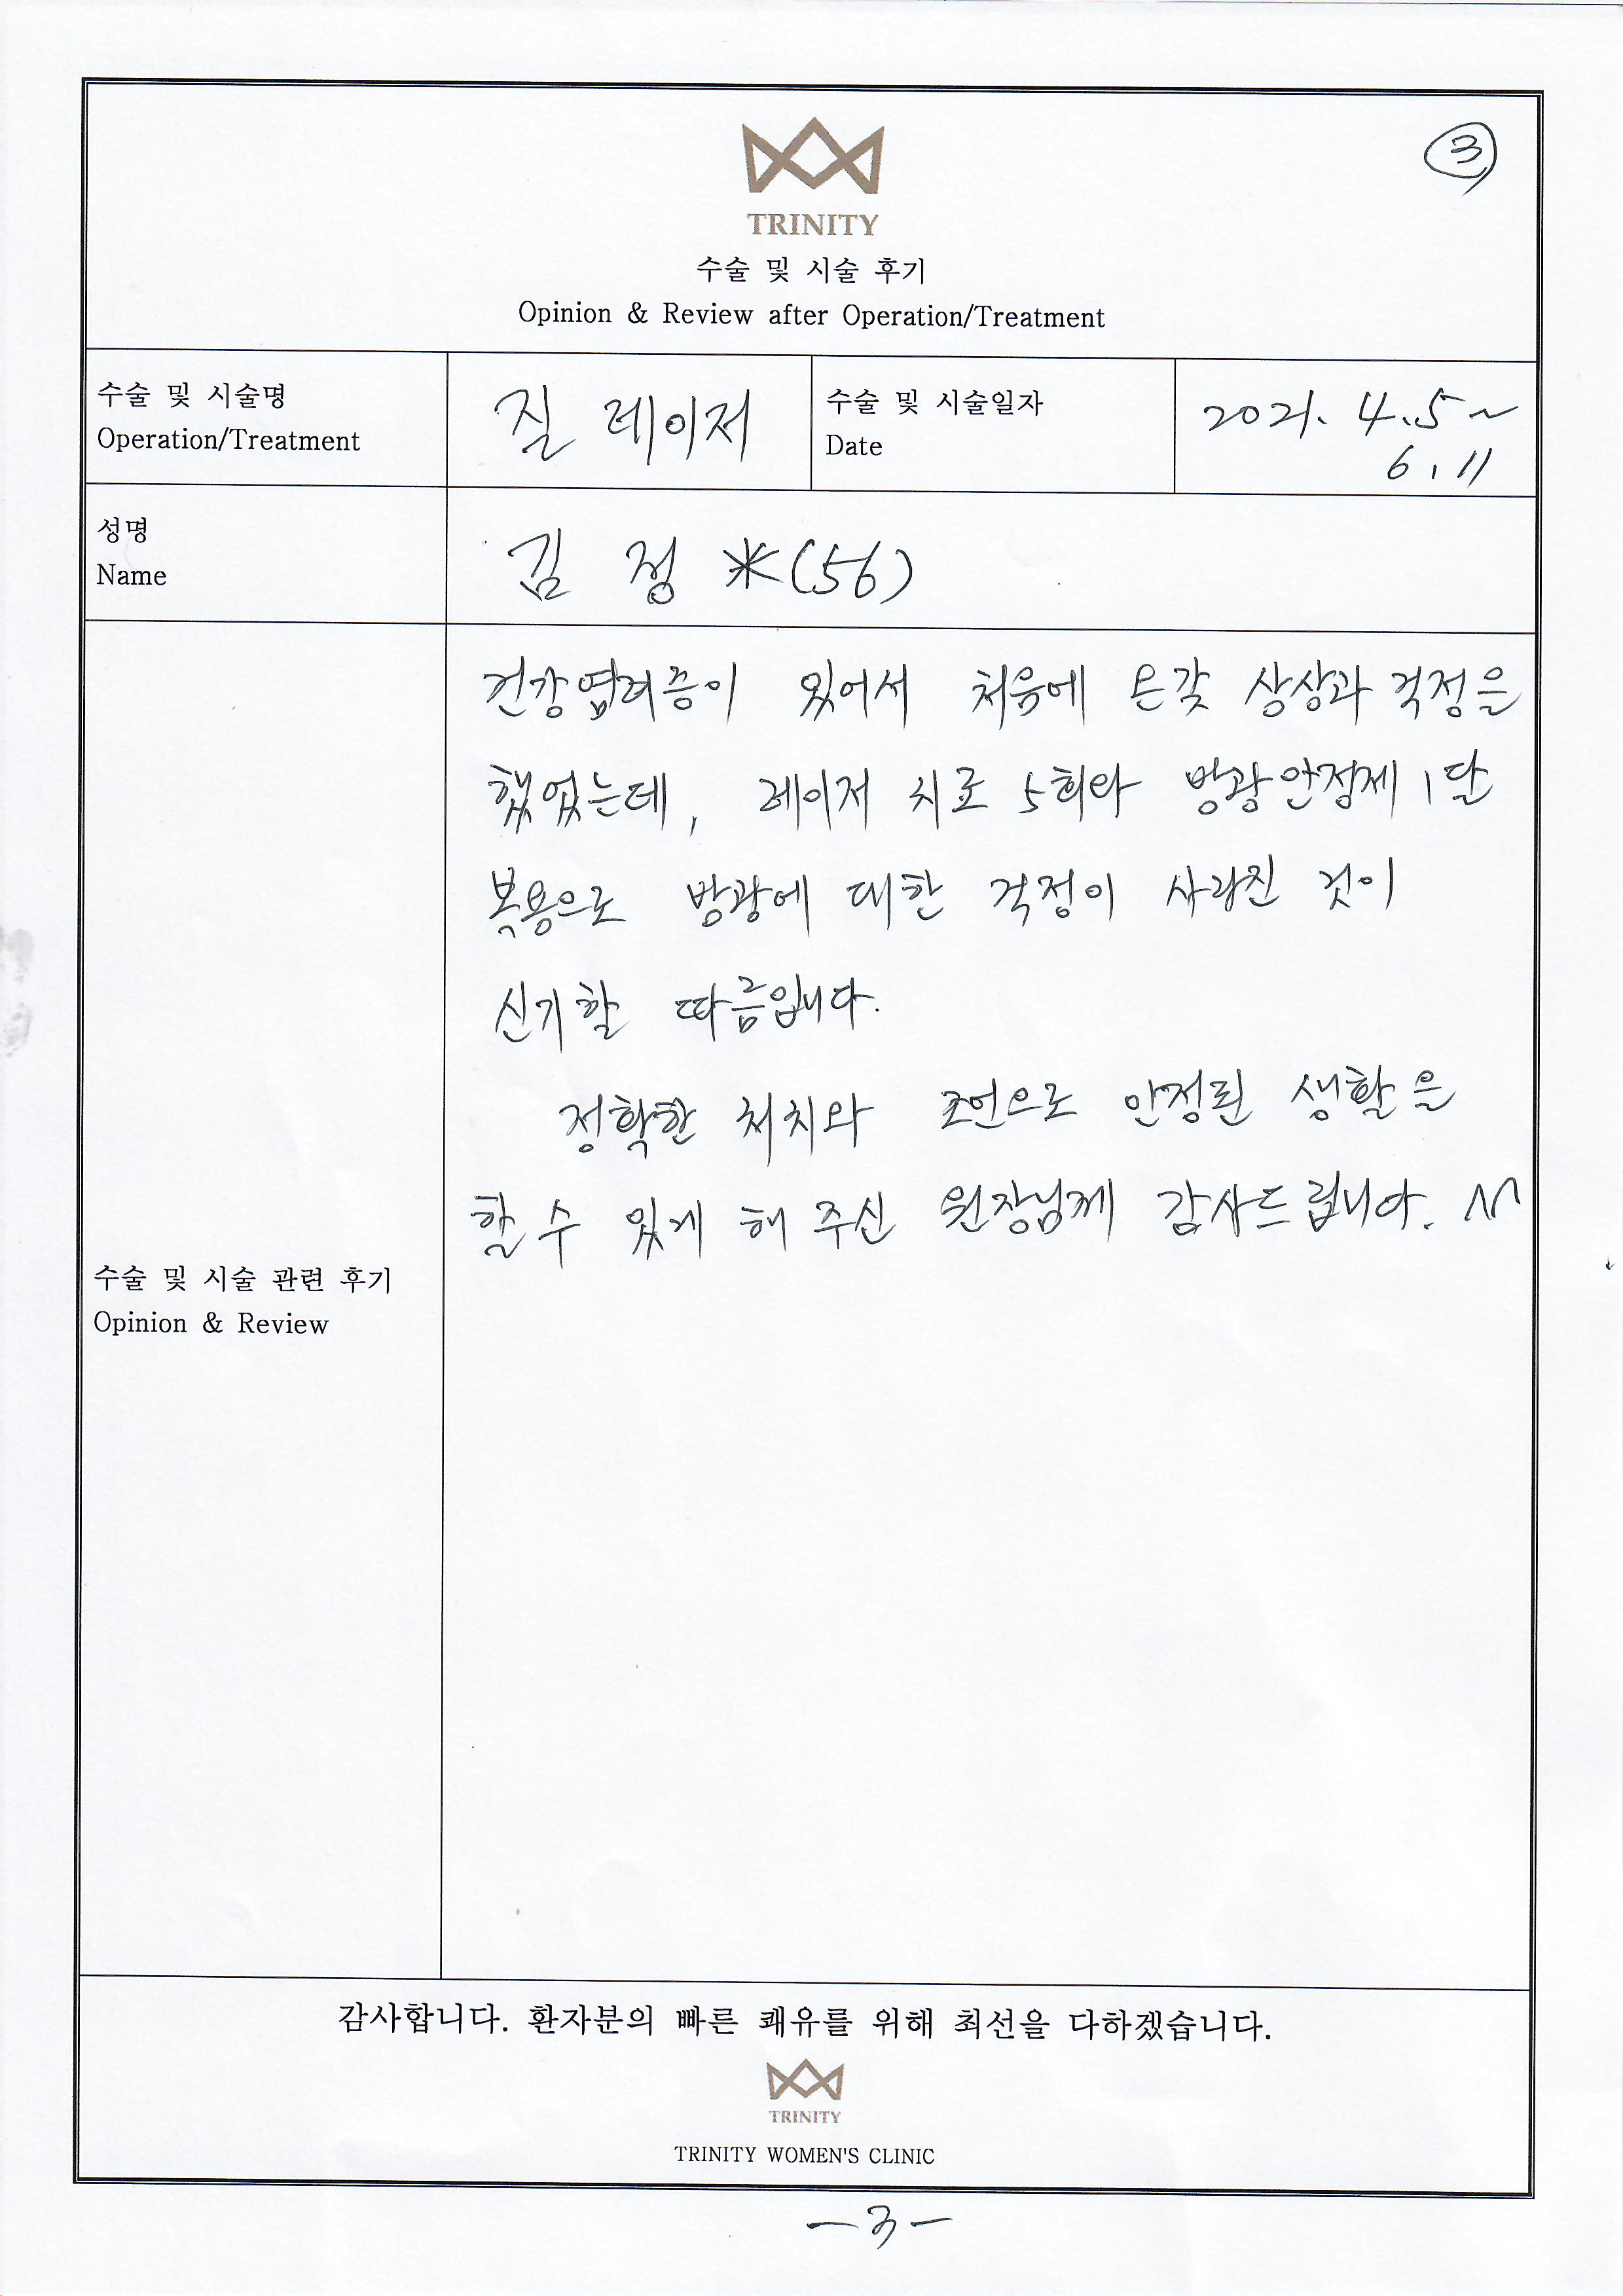 ③
TRINITY
수술 및 시술 후기
Opinion & Review after Operation/Treatment
수술 및 시술명
Operation/Treatment
질 레이저
수술 및 시술일자
Date
2021. 4.5~
6.11
성명
Name
김 정 *(56)
건강염려증이 있어서 처음에 온갖 상상과 걱정을
했었는데, 레이저 치료 5회와 방광안정제 1달
복용으로 방광에 대한 걱정이 사라진 것이
신기할 따름입니다.
정확한 처치와 조언으로 안정된 생활을
할 수 있게 해 주신 원장님께 감사드립니다. ^^
수술 및 시술 관련 후기
Opinion & Review
감사합니다. 환자분의 빠른 쾌유를 위해 최선을 다하겠습니다.
TRINITY
TRINITY WOMEN'S CLINIC
-3-